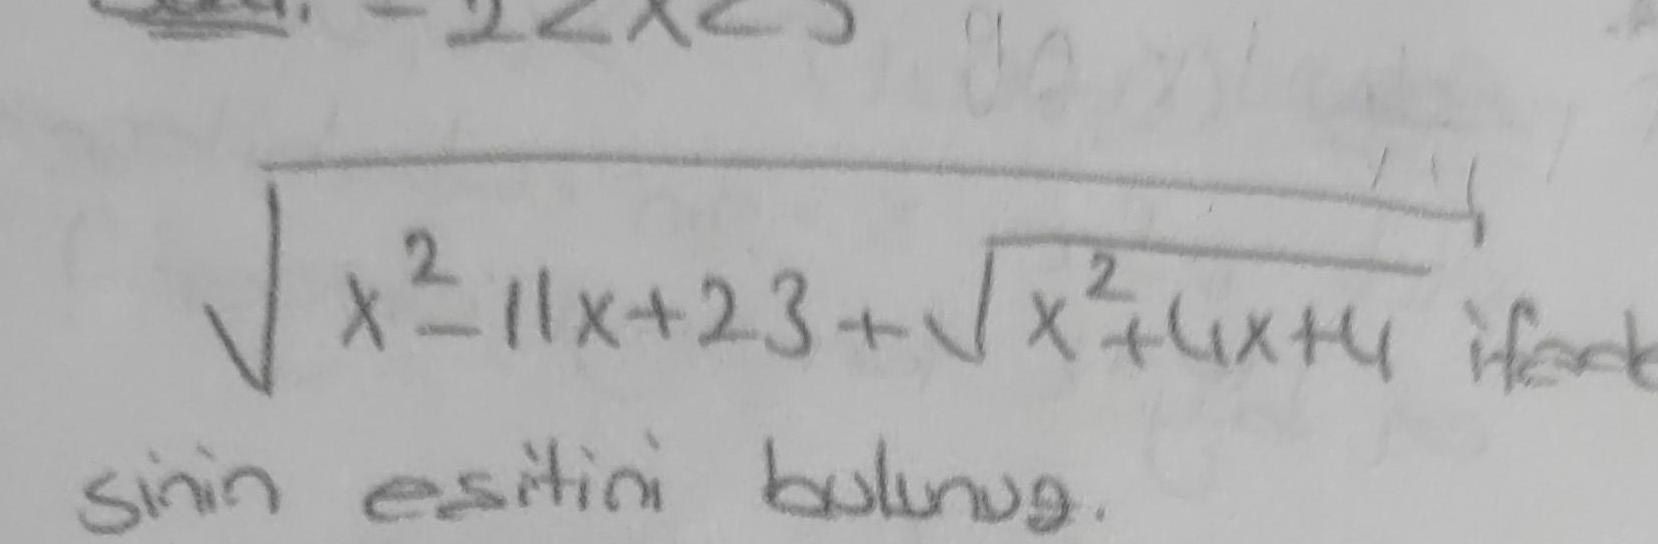 -2<x<5
√(x²-11x+23+√(x²+4x+4)) ifad
sinin esitini bulunuz.